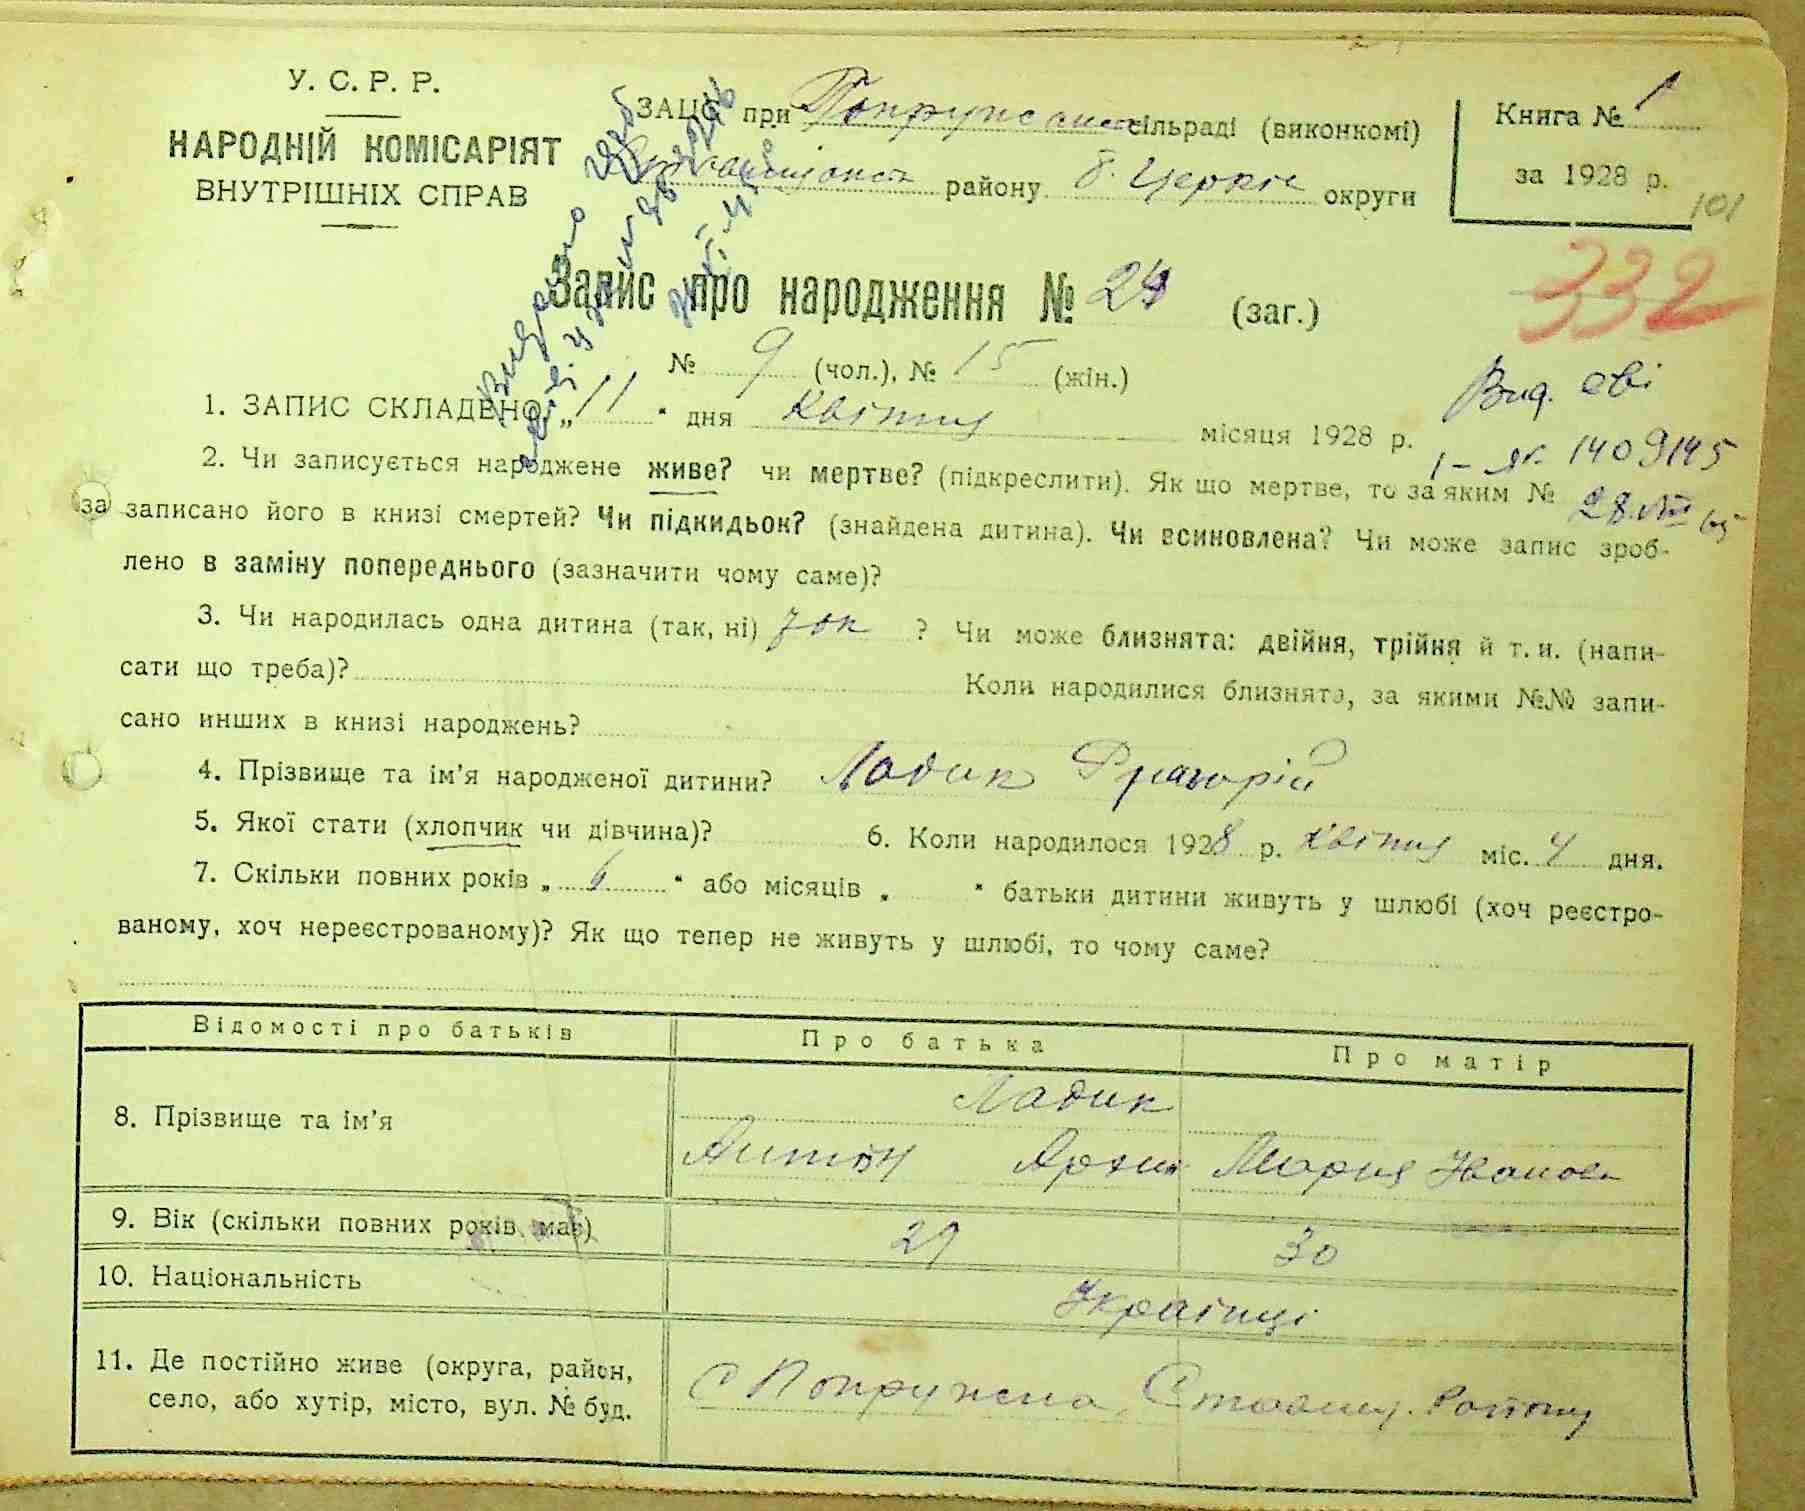 У. С. Р. Р.
НАРОДНІЙ КОМІСАРІЯТ
ВНУТРІШНІХ СПРАВ
ЗАЦС при сільраді (виконкомі)
району Б. Церкв округи
Книга № 1
за 1928 р.
101
332
Запис про народження № 24 (заг.)
№ 9 (чол.), № 15 (жін.)
Вид. сві
1. ЗАПИС СКЛАДЕНО „ 11 " дня Квітня місяця 1928 р.
1409145
2. Чи записується народжене живе? чи мертве? (підкреслити). Як що мертве, то за яким №
28.VIII
за записано його в книзі смертей? Чи підкидьок? (знайдена дитина). Чи всиновлена? Чи може запис зроб-
лено в заміну попереднього (зазначити чому саме)?
3. Чи народилась одна дитина (так, ні) так ? Чи може близнята: двійня, трійня й т. и. (напи-
сати що треба)? Коли народилися близнята, за якими №№ запи-
сано инших в книзі народжень?
4. Прізвище та ім'я народженої дитини? Ладик Григорій
5. Якої стати (хлопчик чи дівчина)? 6. Коли народилося 1928 р. Квітня міс. 4 дня.
7. Скільки повних років „ 6 " або місяців „ " батьки дитини живуть у шлюбі (хоч реєстро-
ваному, хоч нереєстрованому)? Як що тепер не живуть у шлюбі, то чому саме?
Відомості про батьків Про батька Про матір
8. Прізвище та ім'я Ладик
Антон Архип Мария Іванов
9. Вік (скільки повних років має) 29 30
10. Національність Українці
11. Де постійно живе (округа, район,
село, або хутір, місто, вул. № буд.
с Попружна, Ставищ. Району